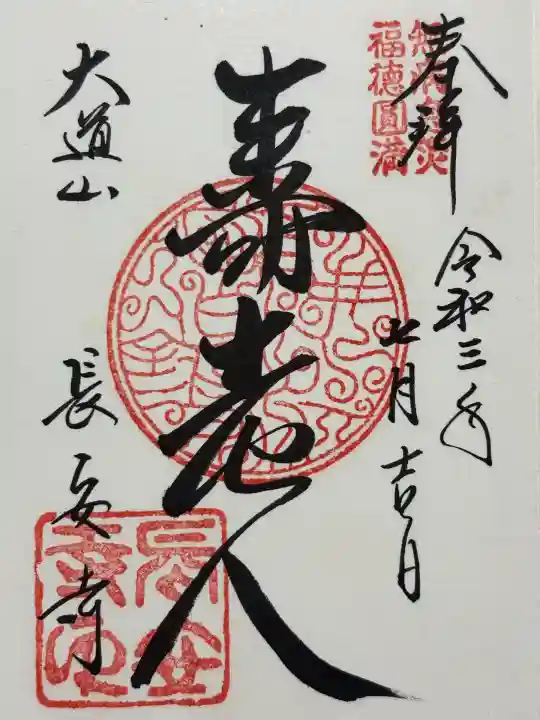 奉拝
無病息災
福徳圓満
令和三年
七月吉日
寿老人
大道山
長安寺